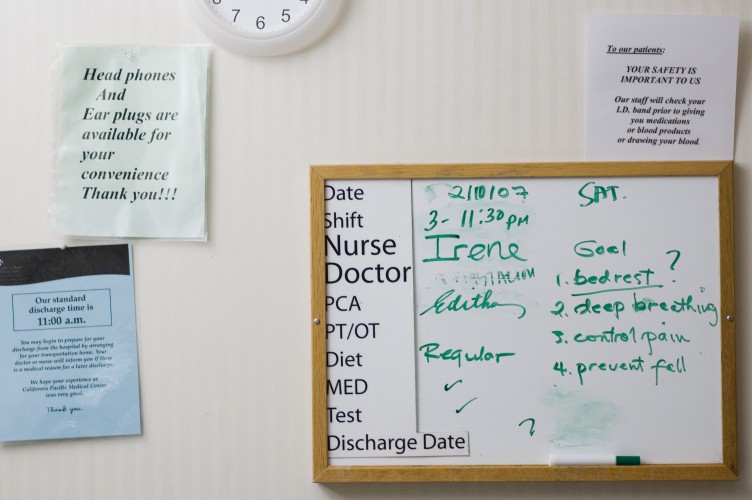 8 7 6 5 4
Head phones
And
Ear plugs are
available for
your
convenience
Thank you!!!
To our patients:
YOUR SAFETY IS
IMPORTANT TO US
Our staff will check your
I.D. band prior to giving
you medications
or blood products
or drawing your blood.
Our standard
discharge time is
11:00 a.m.
You may begin to prepare for your
discharge from the hospital by arranging
for your transportation home. Your
doctor or nurse will inform you if there
is a medical reason for a later discharge.
We hope your experience at
California Pacific Medical Center
was very good.
Thank you
Date 2/10/07 SAT.
Shift 3-11:30 PM
Nurse Irene
Doctor
PCA Editha
PT/OT
Diet Regular
MED ✓
Test ✓
Discharge Date ?
Goal
1. bedrest ?
2. deep breathing
3. control pain
4. prevent fall